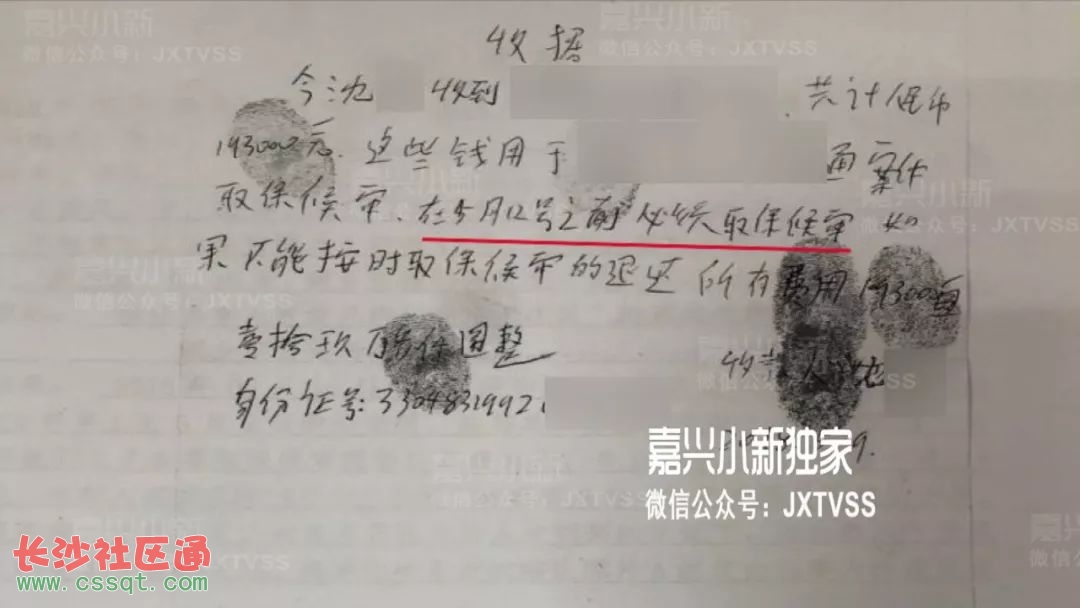 收据
今沈 收到 共计人民币
193000元、这些钱用于 面案件
取保候审、在5月12号之前必须取保候审 如
果不能按时取保候审的退还所有费用193000员
壹拾玖万 仟圆整
收款人:沈
身份证号:3304831992
9.
嘉兴小新独家
微信公众号:JXTVSS
嘉兴小新
微信公众号:JXTVSS
长沙社区通
www.cssqt.com